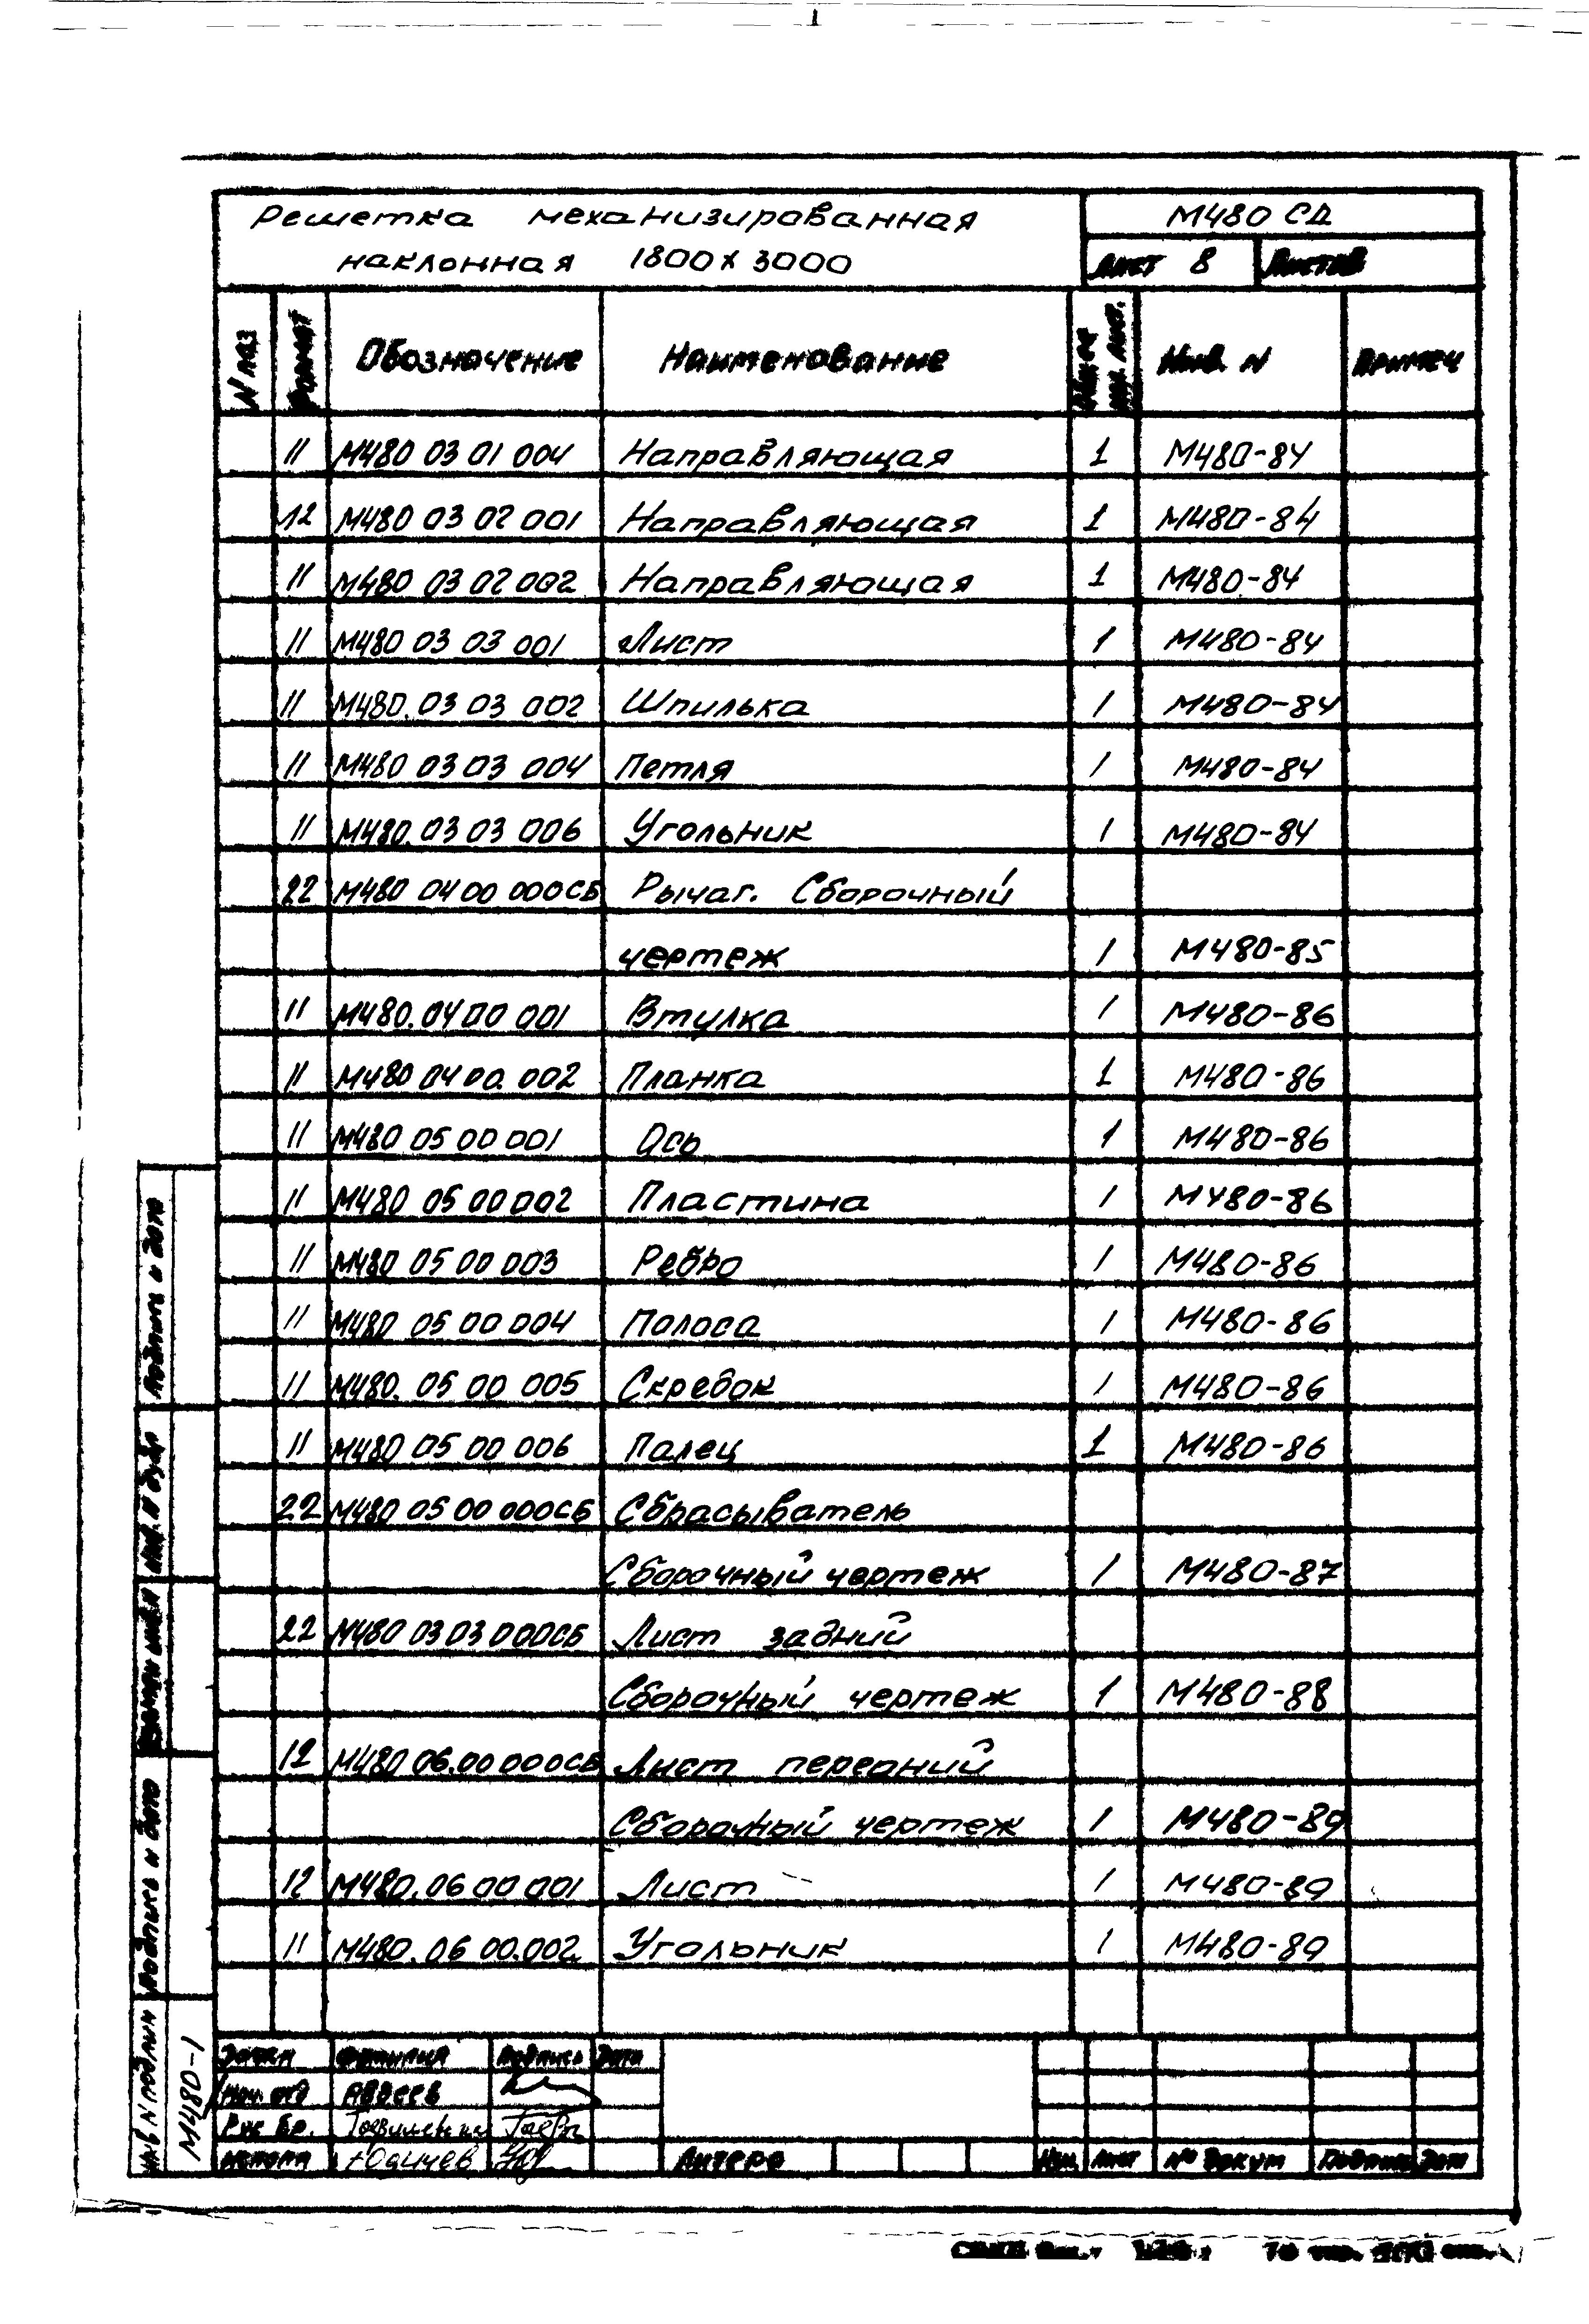 Решетка механизированная
наклонная 1800х3000
М480 СД
лист 8 Листов
N поз Формат Обозначение Наименование Инв. N Примеч
11 М480 03 01 004 Направляющая 1 М480-84
12 М480 03 02 001 Направляющая 1 М480-84
11 М480 03 02 002 Направляющая 1 М480-84
11 М480 03 03 001 Лист 1 М480-84
11 М480.03 03 002 Шпилька 1 М480-84
11 М480 03 03 004 Петля 1 М480-84
11 М480.03 03 006 Угольник 1 М480-84
22 М480 04 00 000СБ Рычаг. Сборочный
чертеж 1 М480-85
11 М480.04 00 001 Втулка 1 М480-86
11 М480 04 00.002 Планка 1 М480-86
11 М480 05 00 001 Ось 1 М480-86
11 М480 05 00 002 Пластина 1 М480-86
11 М480 05 00 003 Ребро 1 М480-86
11 М480 05 00 004 Полоса 1 М480-86
11 М480. 05 00 005 Скребок 1 М480-86
11 М480 05 00 006 Палец 1 М480-86
22 М480 05 00 000СБ Сбрасыватель
Сборочный чертеж 1 М480-87
22 М480 03 03 000СБ Лист задний
Сборочный чертеж 1 М480-88
12 М480 06.00 000СБ Лист передний
Сборочный чертеж 1 М480-89
12 М480.06 00 001 Лист 1 М480-89
11 М480.06 00.002 Угольник 1 М480-89
Фамилия Подпись Дата
Нач. отд Авдеев
Рук бр.
Юдичев
Литера
Изм. Лист № докум Подпись Дата
Подпись и дата
Инв. N дубл
Взамен инв N
Подпись и дата
Инв N подлин
М480-1